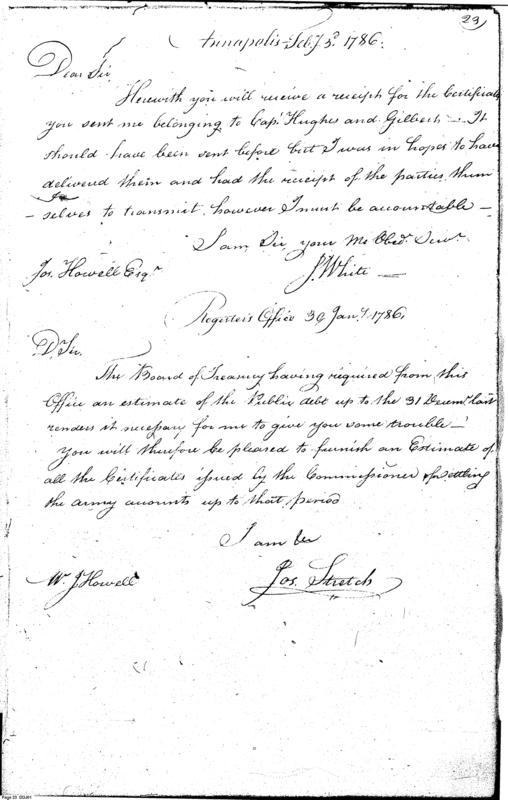 23
Annapolis Feby 3d. 1786.
Dear Sir
Herewith you will receive a receipt for the Certificates
you sent me belonging to Capt Hughes and Gilbert. It
should have been sent before but I was in hopes to have
delivered them and had the receipt of the parties them
-selves to transmit, however I must be accountable —
I am Sir your Mo Obedt Servt
J White —
Jos. Howell Esqr
Register's Office 30 Jany. 1786.
D. Sir.
The Board of Treasury having required from this
Office an estimate of the Public debt up to the 31 Decemr. last
renders it necessary for me to give you some trouble —
You will therefore be pleased to furnish an Estimate of
all the Certificates issued by the Commissioner for settling
the army accounts up to that period
I am &c
Jos. Stretch
Mr J Howell
Page 23